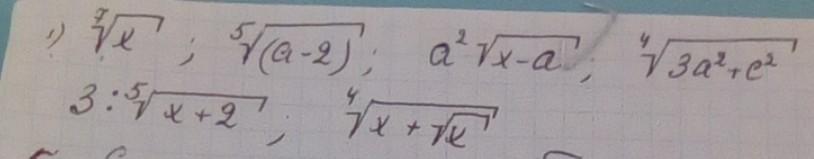 1) ⁷√x ; ⁵√(a-2) ; a² √x-a ; ⁴√3a²+c²
3 : ⁵√x+2 ; ⁴√x+√x